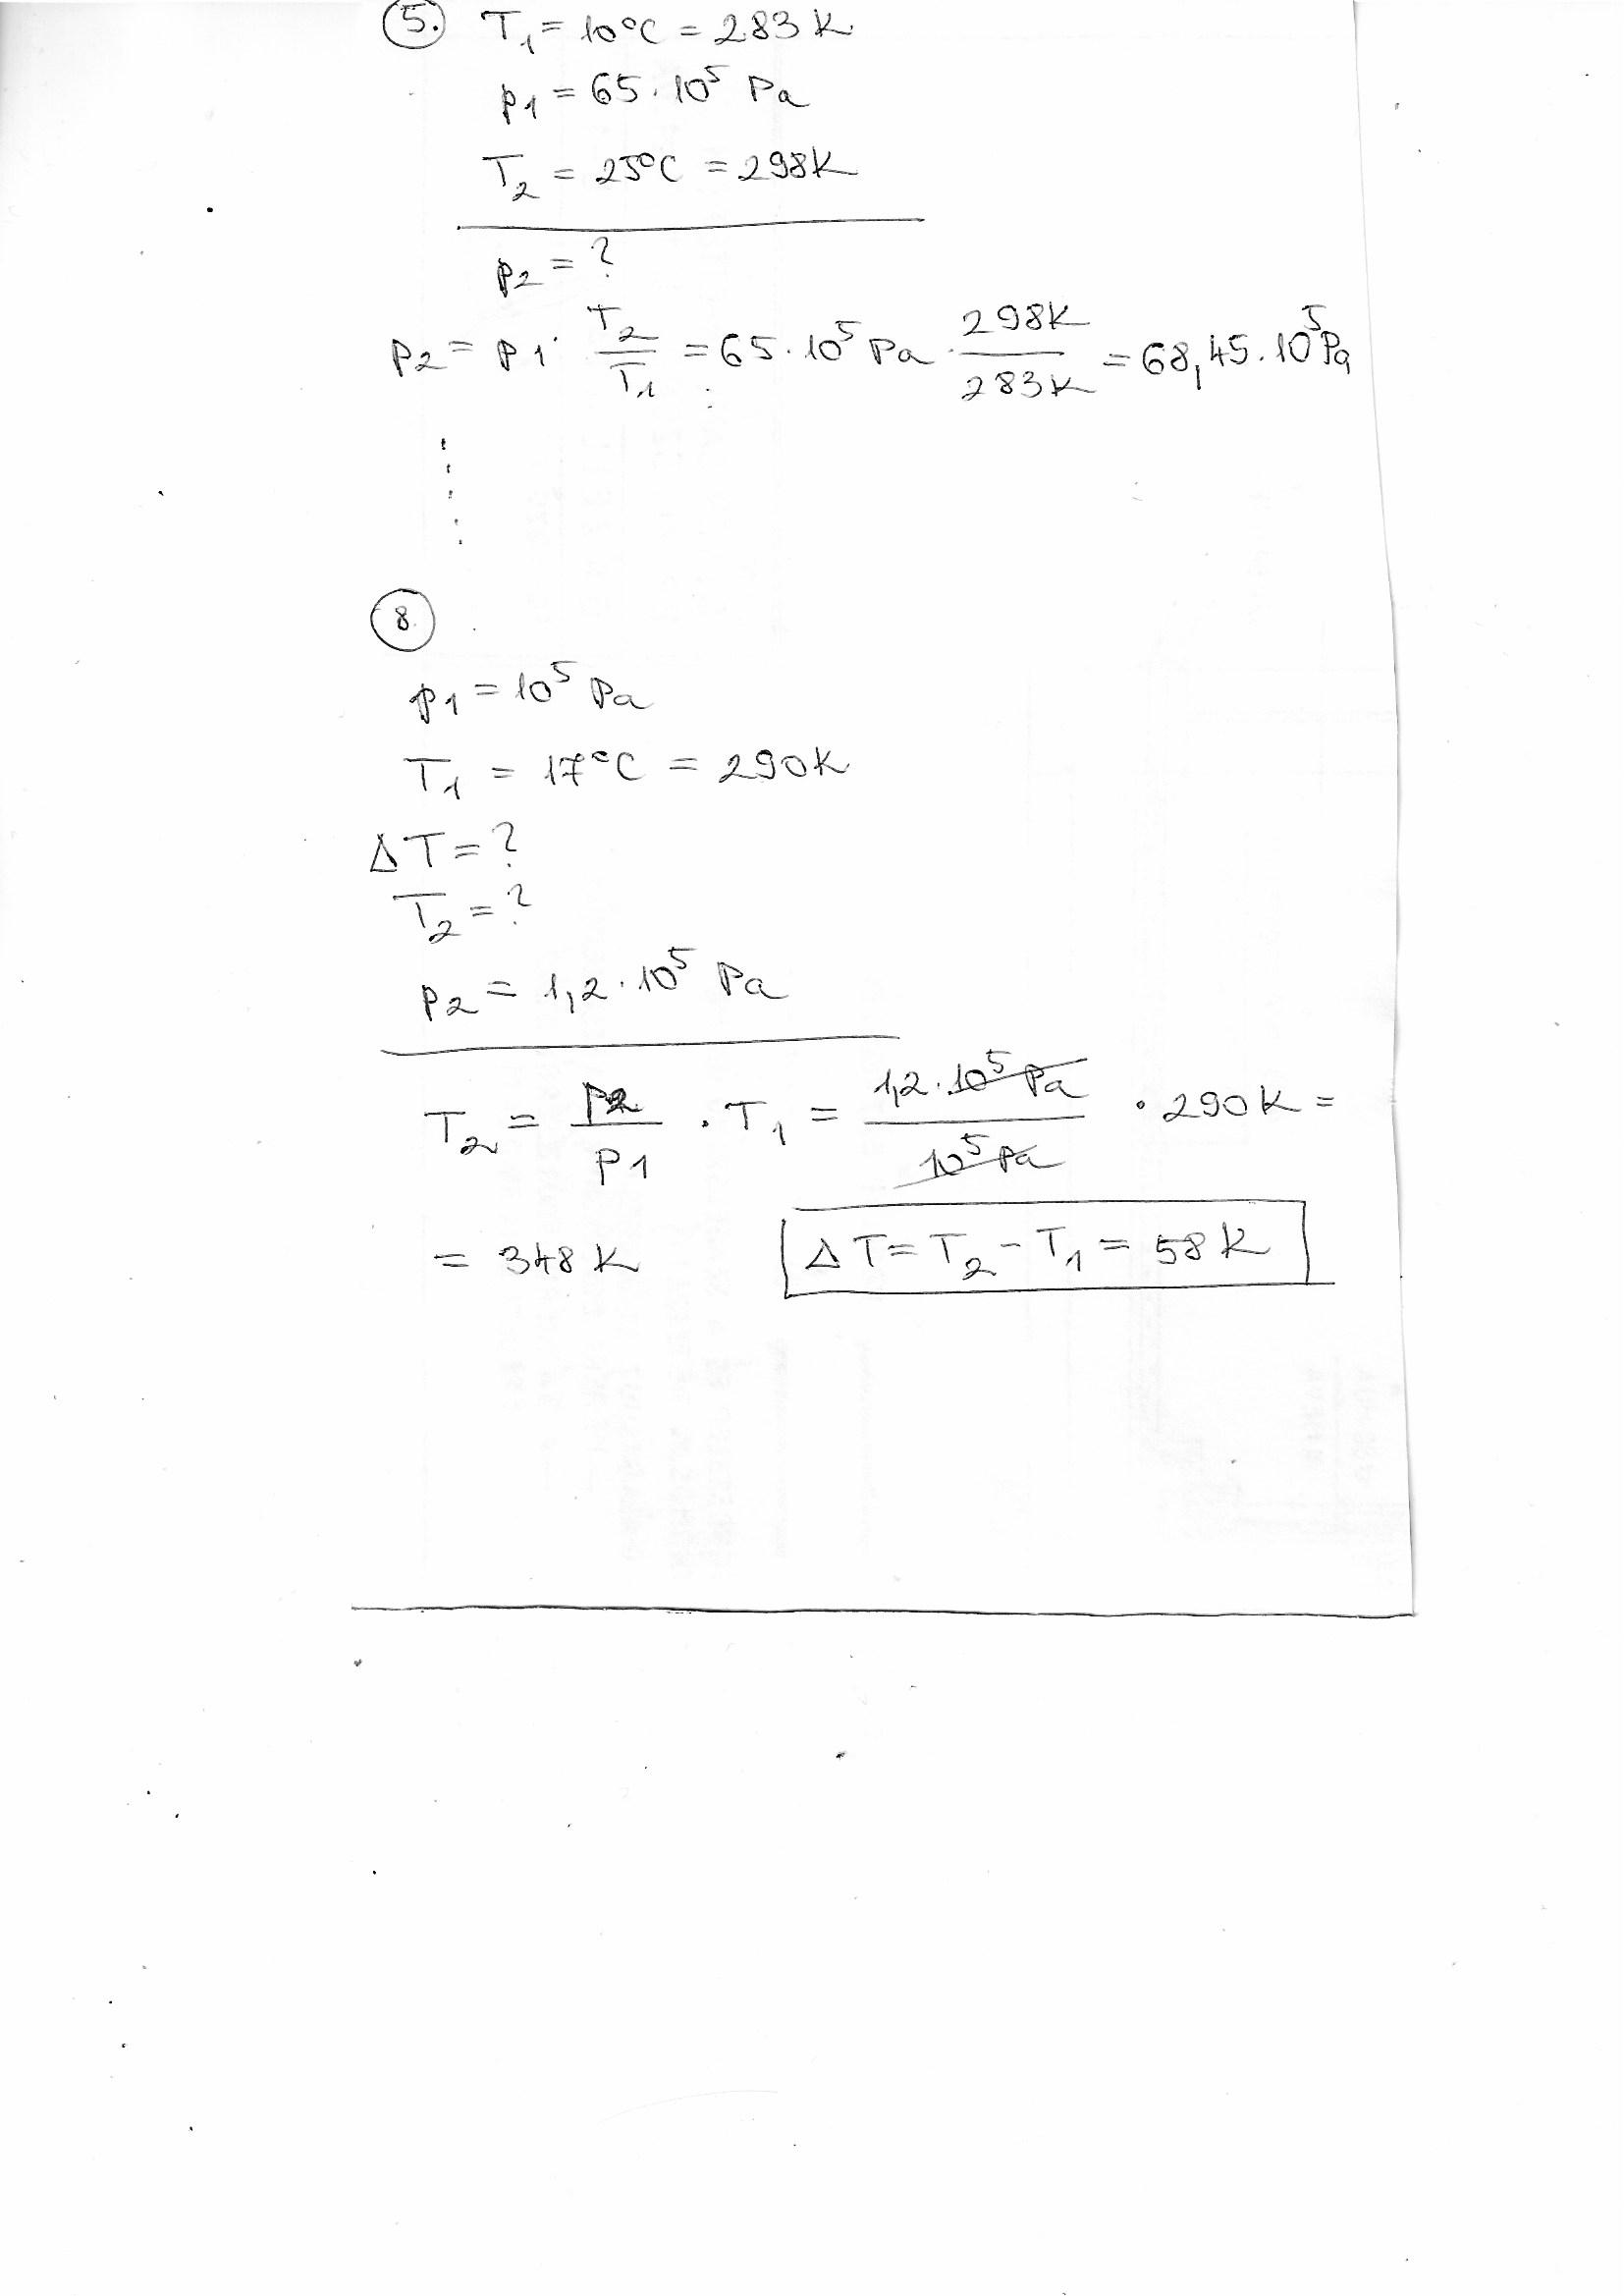 5. T₁ = 10°C = 283 K
p₁ = 65 · 10⁵ Pa
T₂ = 25°C = 298K
p₂ = ?
p₂ = p₁ · T₂/T₁ = 65 · 10⁵ Pa · 298K/283K = 68,45 · 10⁵ Pa
8.
p₁ = 10⁵ Pa
T₁ = 17°C = 290K
ΔT = ?
T₂ = ?
p₂ = 1,2 · 10⁵ Pa
T₂ = p₂/p₁ · T₁ = 1,2 · 10⁵ Pa/10⁵ Pa · 290K =
= 348 K ΔT = T₂ - T₁ = 58 K